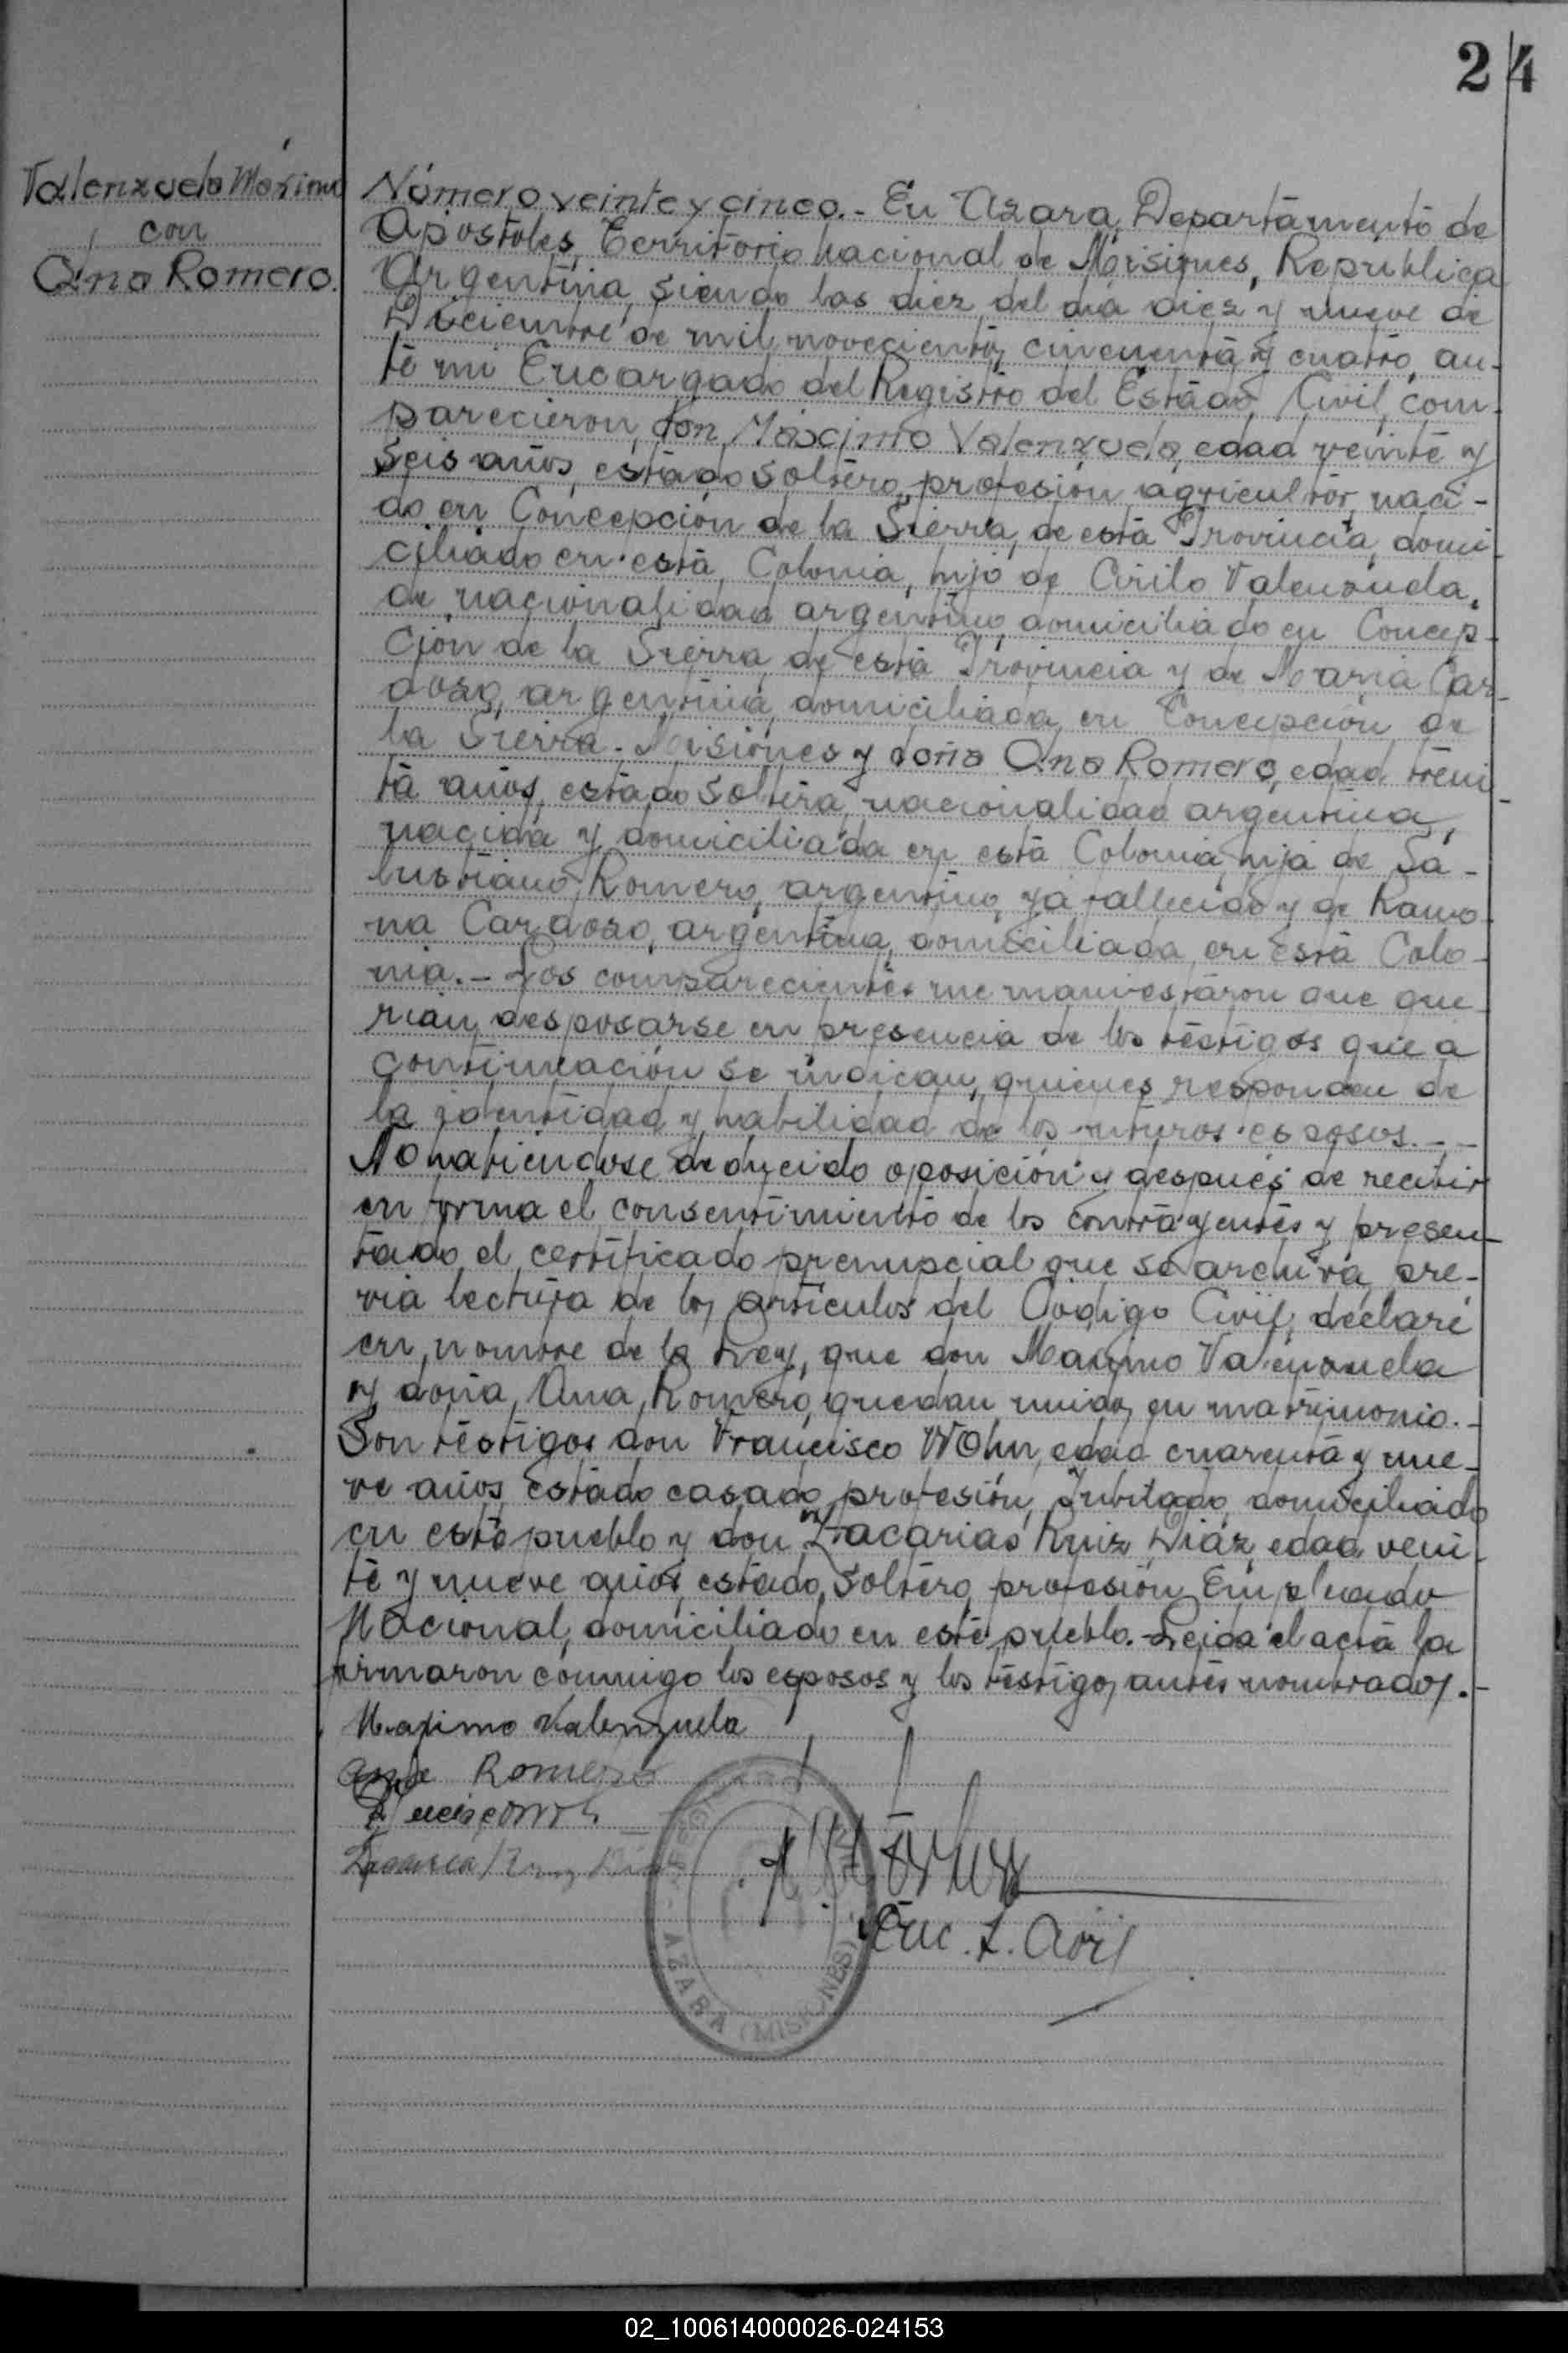 24
Valenzuela Máximo
con
Ana Romero.
Número veinte y cinco.- En Azara, Departamento de
Apóstoles, Territorio nacional de Misiones, República
Argentina, siendo las diez del día diez y nueve de
Diciembre de mil novecientos cincuenta y cuatro, an-
te mi Encargado del Registro del Estado Civil, com-
parecieron, don Máximo Valenzuela, edad veinte y
seis años, estado soltero, profesión agricultor, naci-
do en Concepción de la Sierra, de esta Provincia, domi-
ciliado en esta Colonia, hijo de Cirilo Valenzuela,
de nacionalidad argentino, domiciliado en Concep-
ción de la Sierra, de esta Provincia y de Maria Car-
dozo, argentina, domiciliada en Concepción de
la Sierra.- Misiones y doña Ana Romero, edad trein-
ta años, estado soltera, nacionalidad argentina,
nacida y domiciliada en esta Colonia, hija de Sa-
lustiano Romero, argentino, ya fallecido y de Ramo-
na Cardozo, argentina, domiciliada en esta Colo-
nia.- Los comparecientes me manifestaron que que-
rian desposarse en presencia de los testigos que a
continuación se indican, quienes responden de
la identidad y habilidad de los futuros esposos.--
No habiendose deducido oposición y después de recibir
en forma el consentimiento de los contrayentes y presen-
tado el certificado prenupcial que se archiva, pre-
via lectura de los artículos del Codigo Civil, declaré
en nombre de la Ley, que don Maximo Valenzuela
y doña Ana Romero, quedan unidos en matrimonio.-
Son testigos don Francisco Wohn, edad cuarenta y nue-
ve años, estado casado, profesión, Jubilado, domiciliado
en este pueblo y don Zacarias Ruiz Diaz, edad vein-
te y nueve años, estado, soltero, profesión, Empleado
Nacional, domiciliado en este pueblo.- Leida el acta la
firmaron conmigo los esposos y los testigos antes nombrados.-
Maximo Valenzuela
Ana Romero
AZARA (MISIONES)
02_100614000026-024153